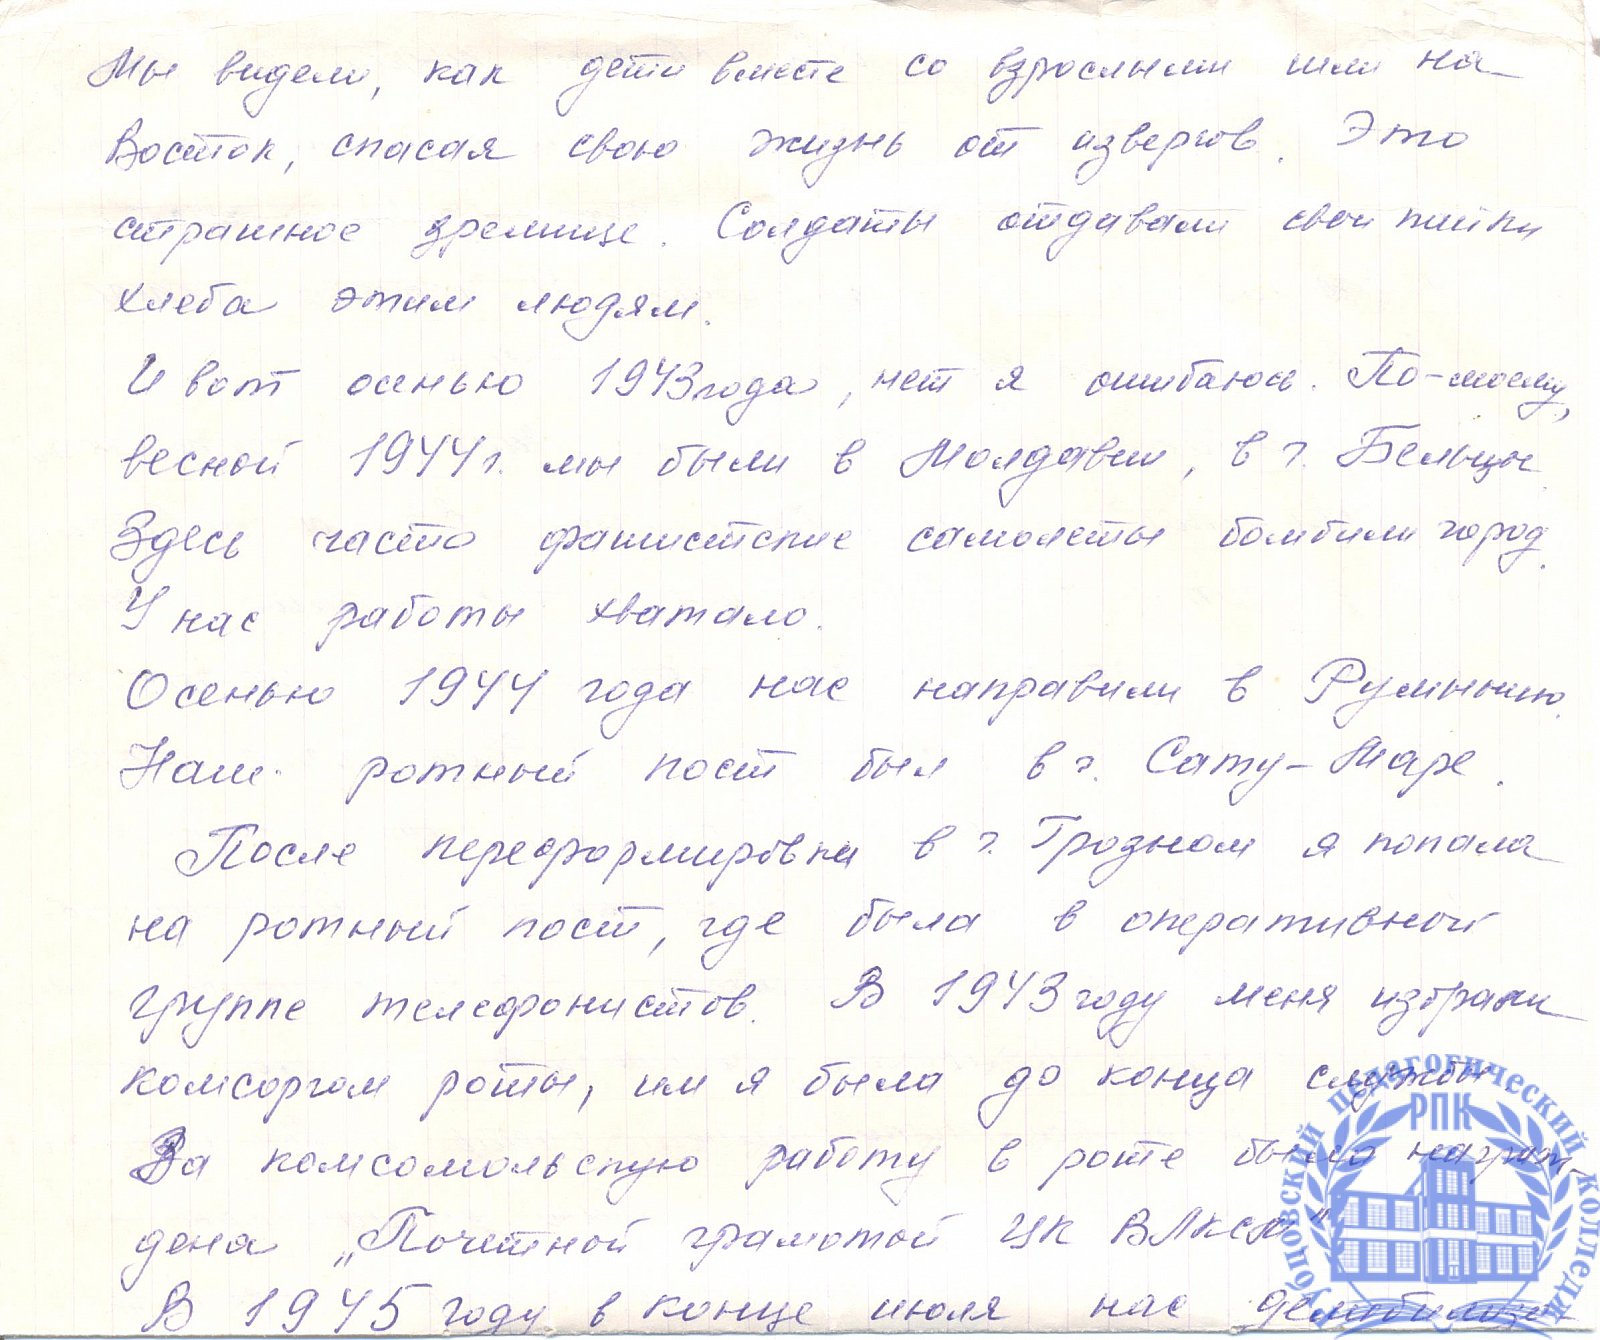 Мы видели, как дети вместе со взрослыми шли на
Восток, спасая свою жизнь от извергов. Это
страшное зрелище. Солдаты отдавали свои пайки
хлеба этим людям.
И вот осенью 1943 года, нет я ошибаюсь. По-моему,
весной 1944 г. мы были в Молдавии, в г. Бельцы.
Здесь часто фашистские самолеты бомбили город.
У нас работы хватало.
Осенью 1944 года нас направили в Румынию.
Наш ротный пост был в г. Сату-Маре.
После переформировки в г. Грозном я попала
на ротный пост, где была в оперативной
группе телефонистов. В 1943 году меня избрали
комсоргом роты, им я была до конца службы.
За комсомольскую работу в роте была награж-
дена „Почетной грамотой ЦК ВЛКСМ"
В 1945 году в конце июля нас демобилизо
Рубцовский педагогический колледж
РПК